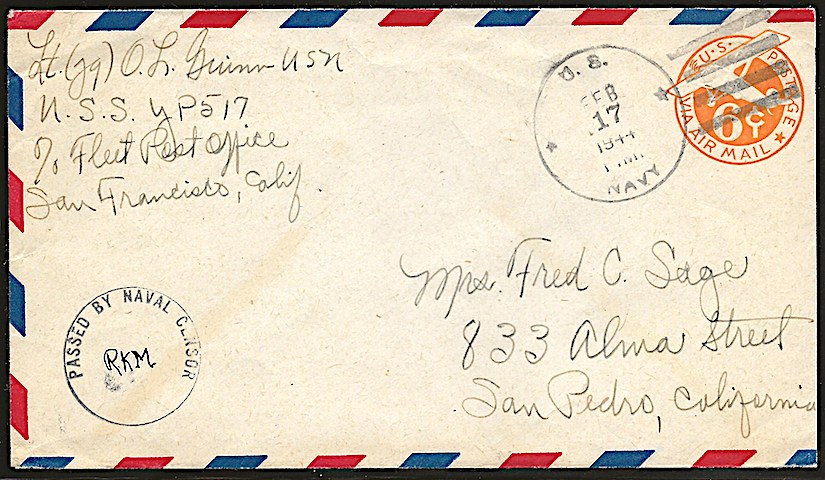 Lt.(jg) O. L. Guinn USN
U.S.S. YP517
c/o Fleet Post Office
San Francisco, Calif.
U. S.
FEB
17
1944
P.M.
NAVY
U.S. POSTAGE
6¢
VIA AIR MAIL
Mrs. Fred C. Sage
833 Alma Street
San Pedro, California
PASSED BY NAVAL CENSOR
RKM